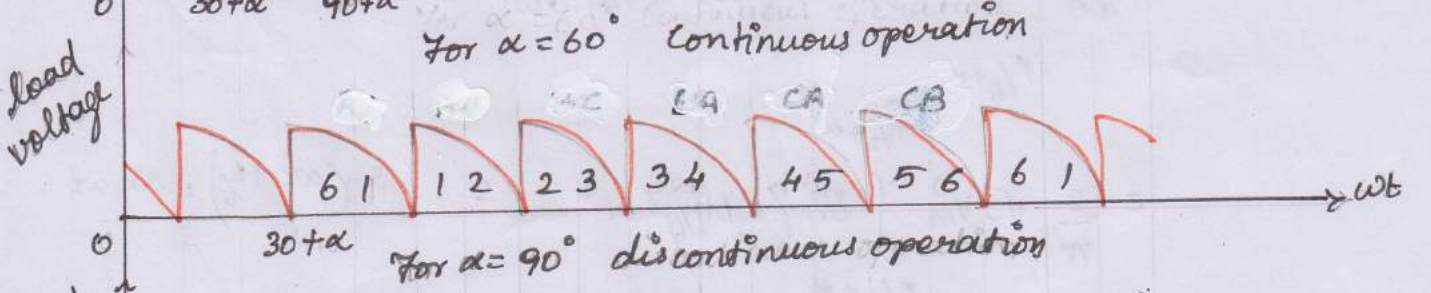 0 30+α 90+α
For α=60° Continuous operation
load
voltage
CA CB
6 1 1 2 2 3 3 4 4 5 5 6 6 1
ωt
0 30+α
For α=90° discontinuous operation